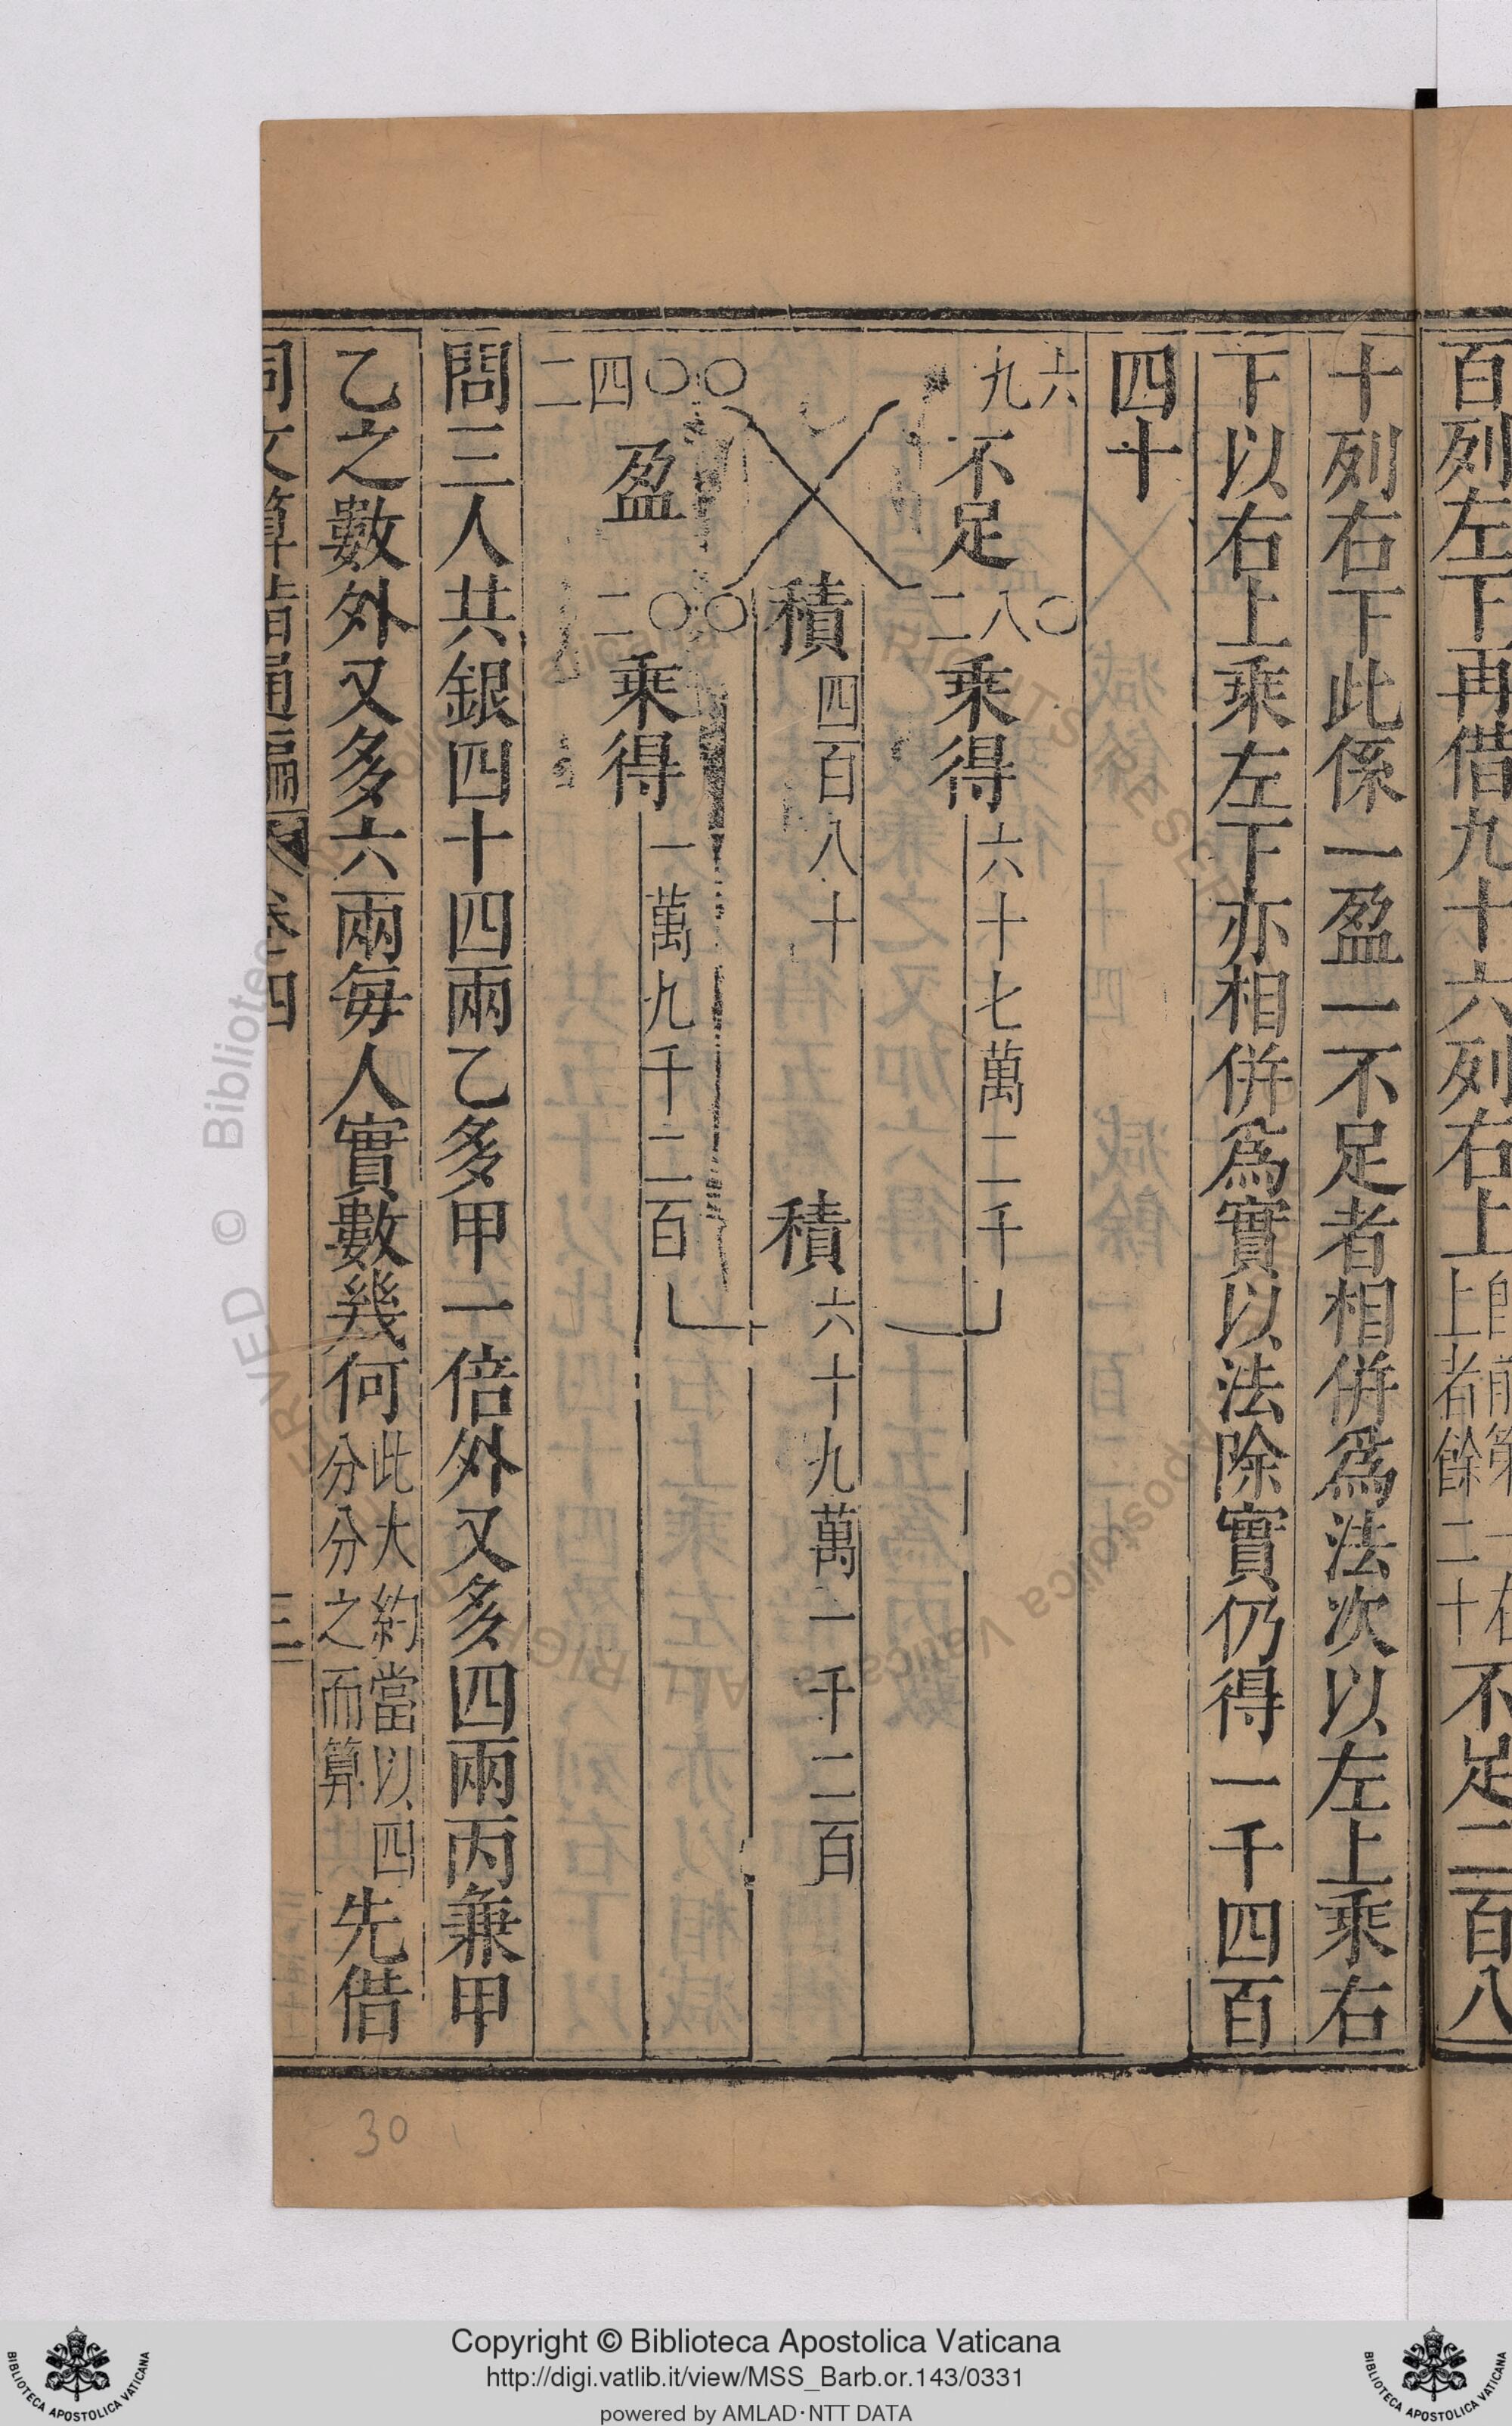 百列左下再借九十六列右上
上者餘二十
不足二百八
十列右下此係一盈一不足者相併爲法次以左上乘右
下以右上乘左下亦相併爲實以法除實仍得一千四百
四十
九六
不足
二八〇
乘得
六十七萬二千
積
四百八十
積
六十九萬一千二百
二四〇〇
盈
二〇〇
乘得
一萬九千二百
問三人共銀四十四兩乙多甲一倍外又多四兩丙兼甲
乙之數外又多六兩每人實數幾何
此大約當以四
分分之而算
先借
同文算指通編
卷四
三
30
Copyright © Biblioteca Apostolica Vaticana
http://digi.vatlib.it/view/MSS_Barb.or.143/0331
powered by AMLAD·NTT DATA
BIBLIOTECA APOSTOLICA VATICANA
BIBLIOTECA APOSTOLICA VATICANA